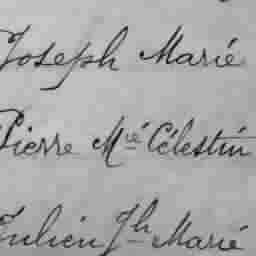 Joseph Marie
Pierre Mie Célestin
Julien Jh Marie